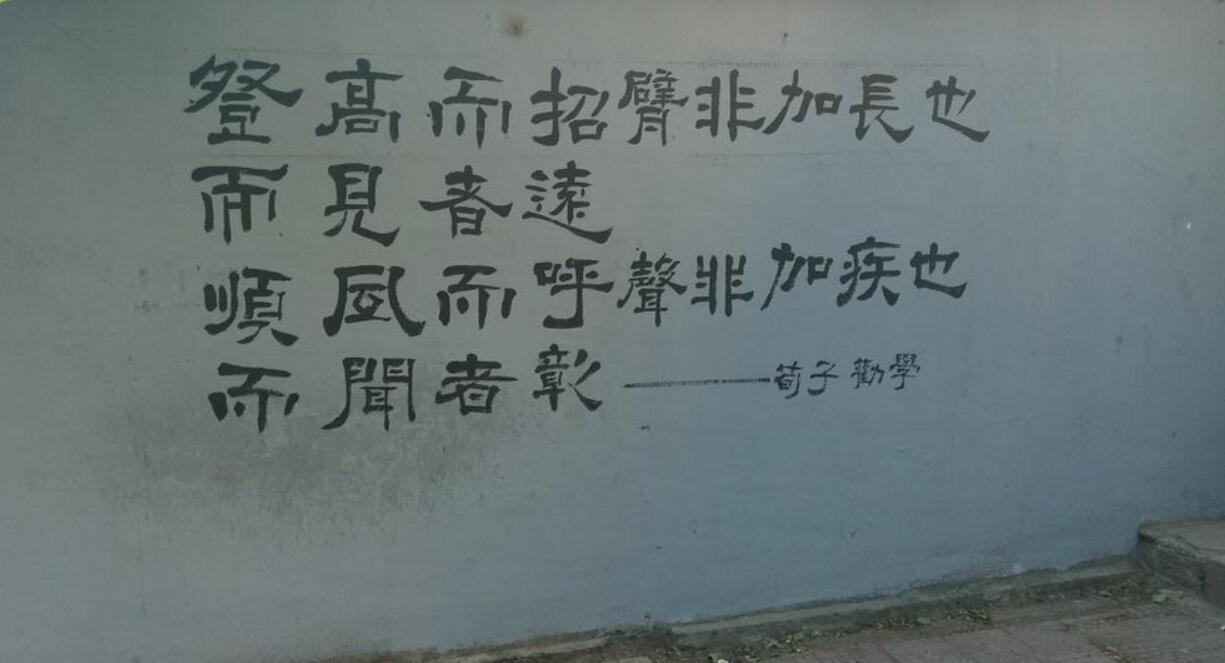 登高而招臂非加長也
而見者遠
順風而呼聲非加疾也
而聞者彰
——荀子勸學